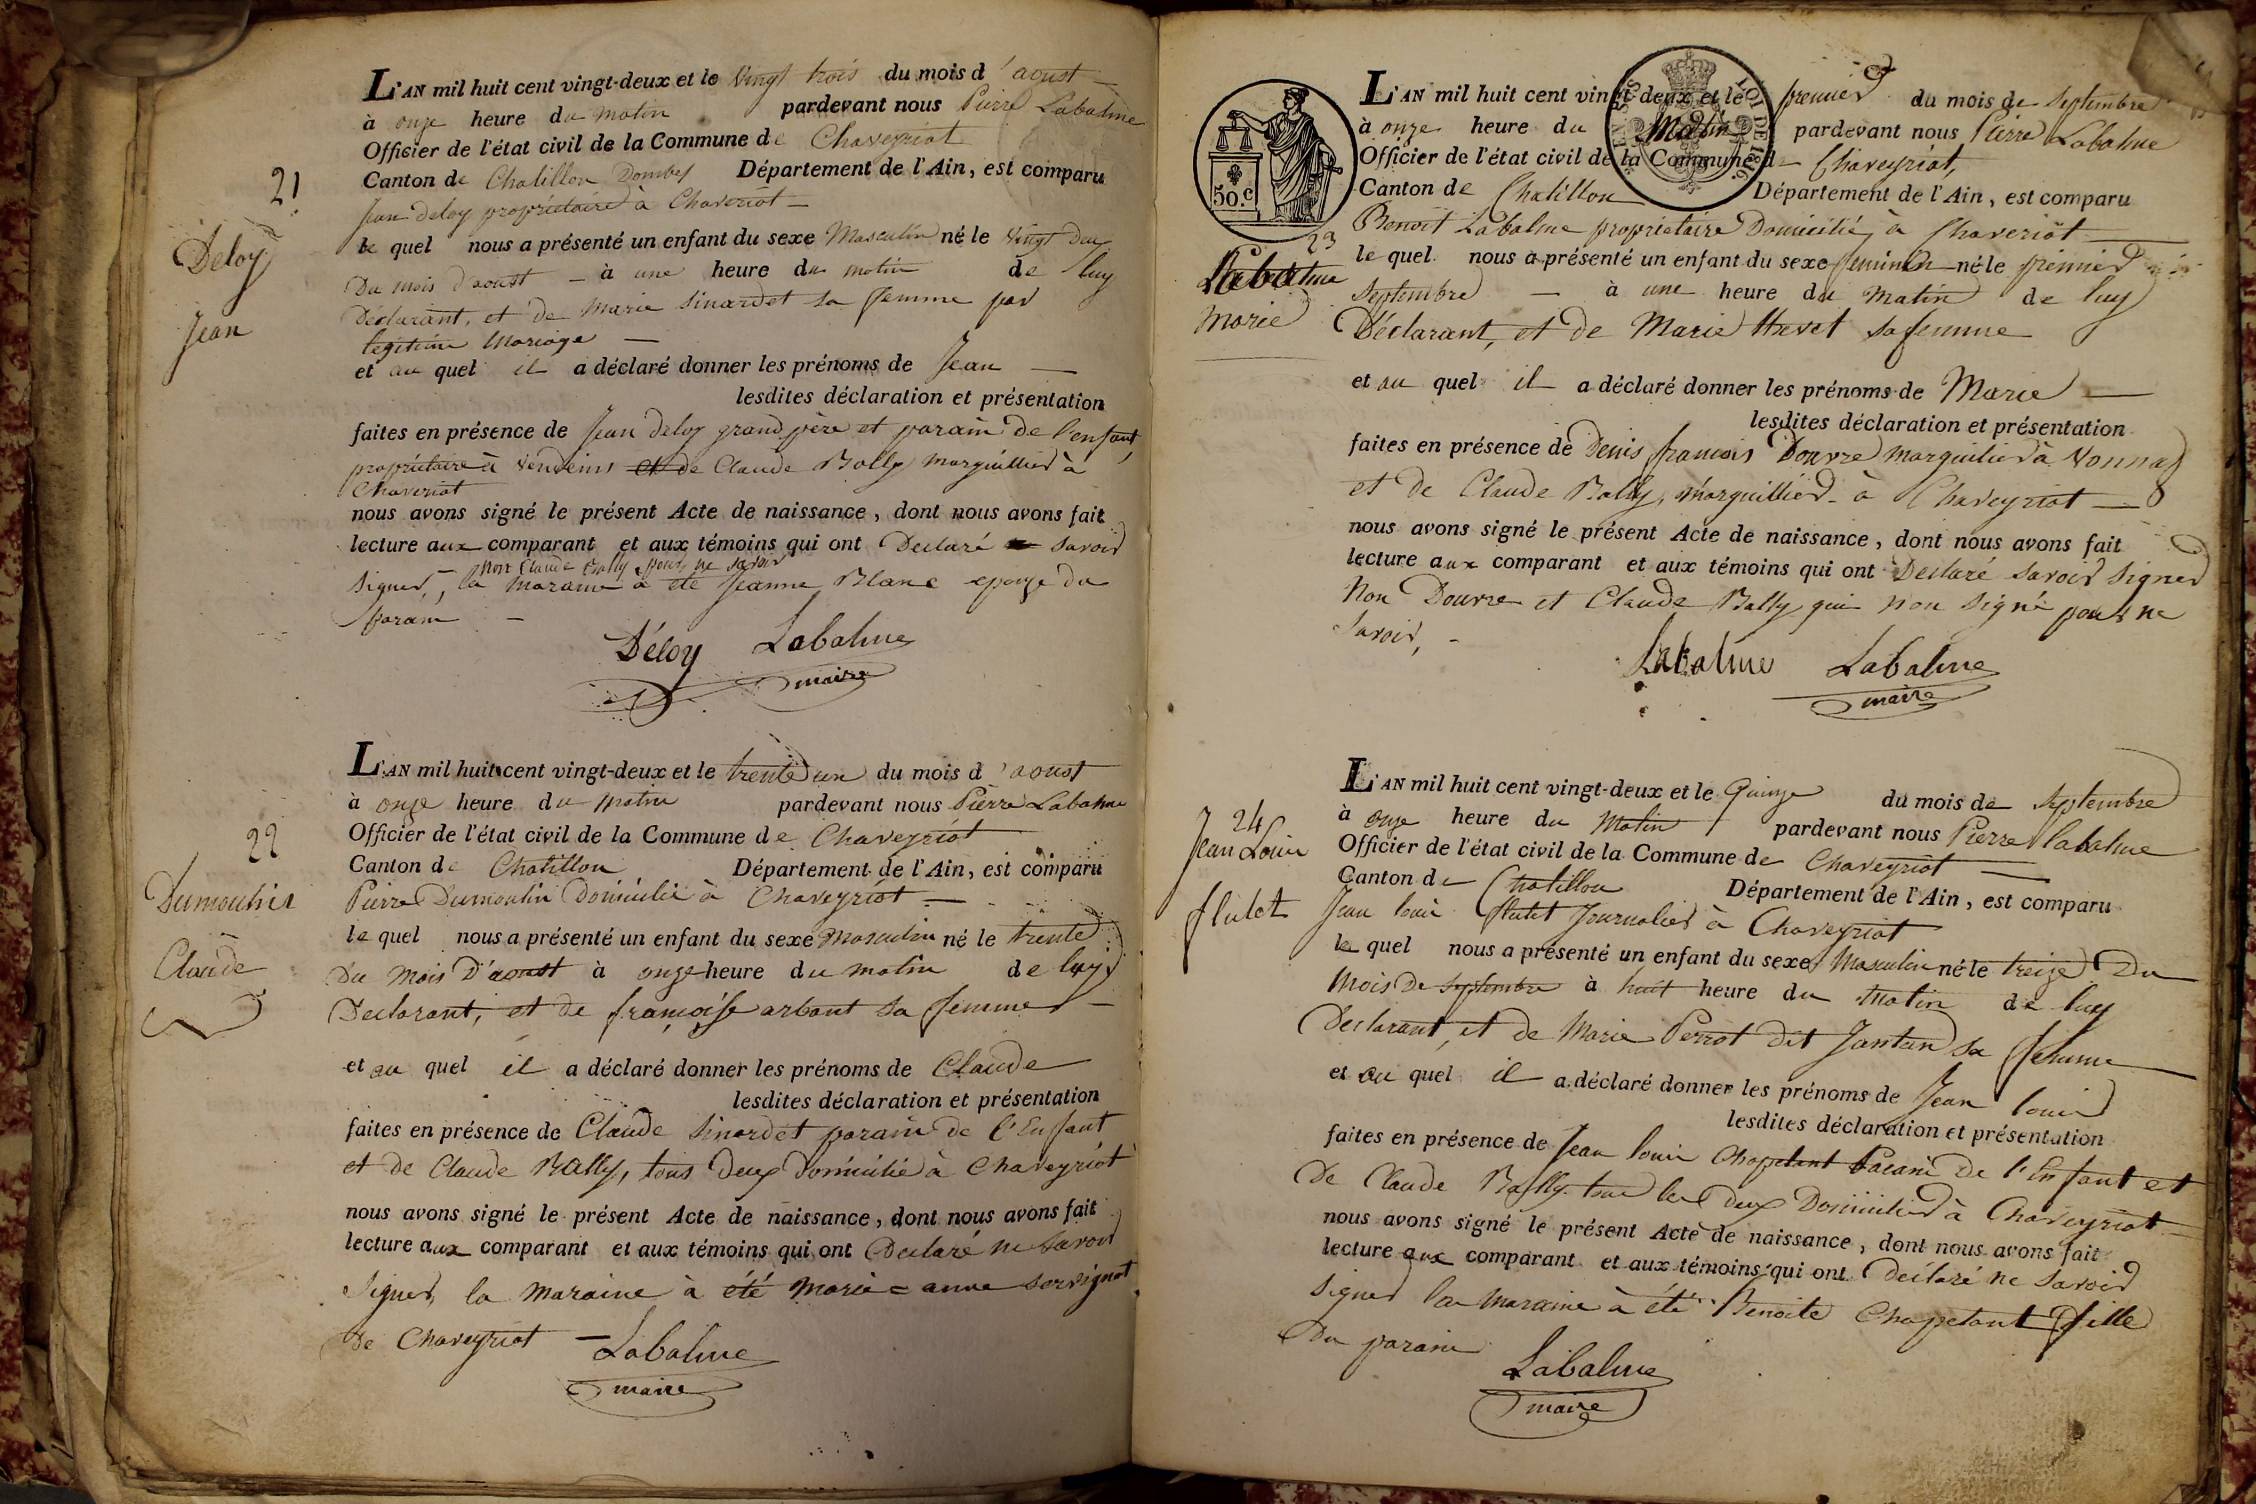 21
Deloy
Jean
L'AN mil huit cent vingt-deux et le vingt trois du mois d'aoust
à onze heure du matin pardevant nous Pierre Labalme
Officier de l'état civil de la Commune de Chaveyriat
Canton de Chatillon Dombes Département de l'Ain, est comparu
Jean deloy propriétaire à Chaveriat
le quel nous a présenté un enfant du sexe Masculin né le vingt deux
Du mois d'aoust à une heure du matin de luy
Déclarant, et de Marie Sinardet sa femme par
legitime Mariage
et au quel il a déclaré donner les prénoms de Jean
lesdites déclaration et présentation
faites en présence de Jean deloy grand père et parain De l'enfant,
propriétaire à Vendeins et de Claude Bally marguillier à
Chaveriat
nous avons signé le présent Acte de naissance, dont nous avons fait
lecture aux comparant et aux témoins qui ont Declaré savoir
Non Claude Bally pour ne savoir
signer, la maraine a été Jeanne Blanc epouze du
parain
Déloy Labalme
maire
22
Dumoulin
Claude
L'AN mil huit cent vingt-deux et le trente un du mois d'aoust
à onze heure du matin pardevant nous Pierre Labalme
Officier de l'état civil de la Commune de Chaveyriat
Canton de Chatillon Département de l'Ain, est comparu
Pierre Dumoulin Domicilié à Chaveyriat
le quel nous a présenté un enfant du sexe masculin né le trente
Du Mois D'aoust à onze heure du matin de luy
Declarant, et de françoise arbant sa femme
et au quel il a déclaré donner les prénoms de Claude
lesdites déclaration et présentation
faites en présence de Claude Sinardet parain de l'Enfant
et de Claude Bally, tous Deux domicilié à Chaveyriat
nous avons signé le présent Acte de naissance, dont nous avons fait
lecture aux comparant et aux témoins qui ont Declaré ne savoir
signer, la maraine à été Marie=anne Sorvignat
De Chaveyriat Labalme
maire
50.c
LOI DE 1816.
23
Labalme
Marie
L'AN mil huit cent vingt-deux et le premier du mois de septembre
à onze heure du Matin pardevant nous Pierre Labalme
Officier de l'état civil de la Commune de Chaveyriat,
Canton de Chatillon Département de l'Ain, est comparu
Benoit Labalme propriétaire Domicilié à Chaveriat
le quel nous a présenté un enfant du sexe feminin né le premier
septembre à une heure du Matin de luy
Déclarant, et de Marie thevet sa femme
et au quel il a déclaré donner les prénoms de Marie
lesdites déclaration et présentation
faites en présence de Denis françois Douvre marguilier à Vonnas
et de Claude Bally, marguillier à Chaveyriat
nous avons signé le présent Acte de naissance, dont nous avons fait
lecture aux comparant et aux témoins qui ont Déclaré savoir signer
Non Douvre et Claude Bally qui non signé pour ne
savoir,
Labalme Labalme
maire
24
Jean Louis
flutet
L'AN mil huit cent vingt-deux et le Quinze du mois de septembre
à onze heure du Matin pardevant nous Pierre labalme
Officier de l'état civil de la Commune de Chaveyriat
Canton de Chatillon Département de l'Ain, est comparu
Jean louis flutet Journalier à Chaveyriat
le quel nous a présenté un enfant du sexe Masculin né le treize Du
Mois De septembre à huit heure du Matin de luy
Declarant, et de Marie Perrot dit Jantan sa femme
et au quel il a déclaré donner les prénoms de Jean louis
lesdites déclaration et présentation
faites en présence de Jean louis Chapelant Parain De l'Enfant et
De Claude Bally les Deux Domicilier à Chaveyriat
nous avons signé le présent Acte de naissance, dont nous avons fait
lecture aux comparant et aux témoins qui ont declaré ne savoir
signer la maraine à été Benoite Chapelant fille
Du parain
Labalme
maire